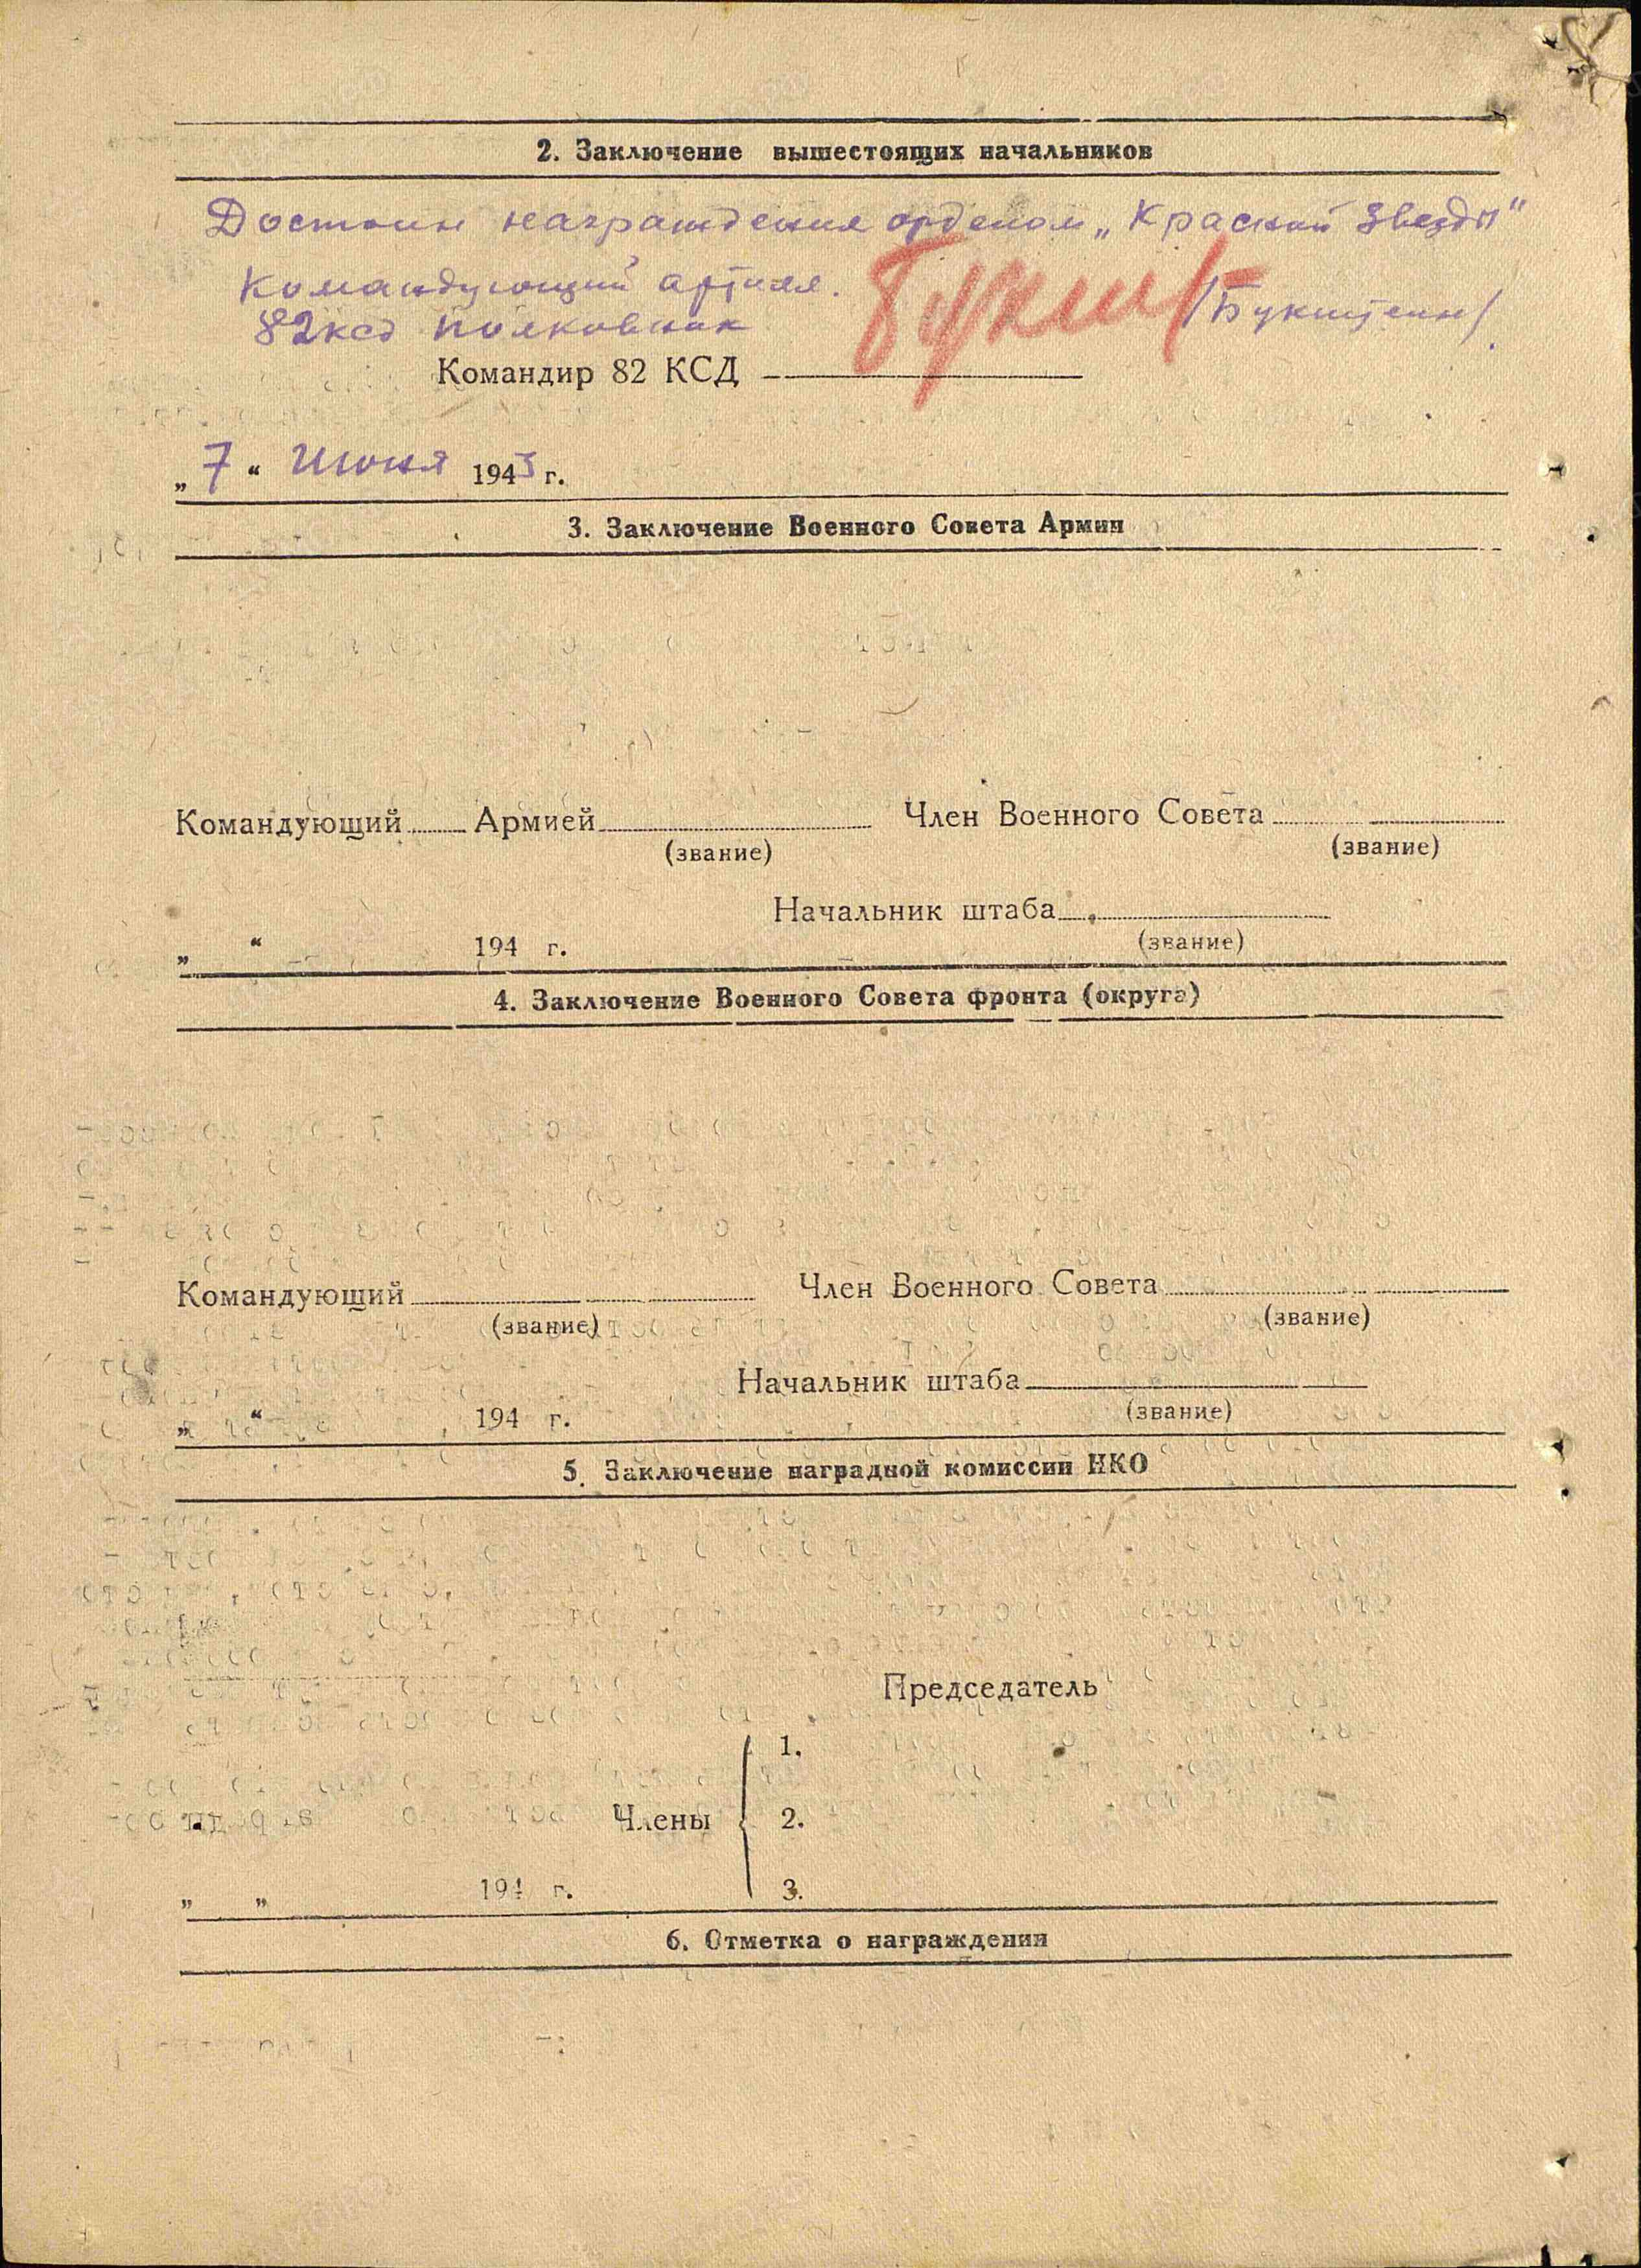 2. Заключение вышестоящих начальников
Достоин награждения орденом „Красной Звезды“
Командующий артилл.
82ксд полковник
/Букштейн/
Командир 82 КСД
„7“ июня 1945 г.
3. Заключение Военного Совета Армии
Командующий Армией Член Военного Совета
(звание) (звание)
Начальник штаба
(звание)
„ “ 194 г.
4. Заключение Военного Совета фронта (округа)
Командующий Член Военного Совета
(звание) (звание)
Начальник штаба
(звание)
„ “ 194 г.
5. Заключение наградной комиссии НКО
Председатель
1.
Члены 2.
3.
„ „ 194 г.
6. Отметка о награждении